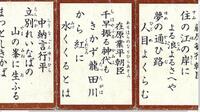 住の江の岸に
よる波よるさへや
夢の通ひ路
人目よくらむ
在原業平朝臣
千早振る神代も
きかず龍田川
から紅に
水くくるとは
中納言行平
立別れいなばの
山の峯に生ふる
まつとしきかば